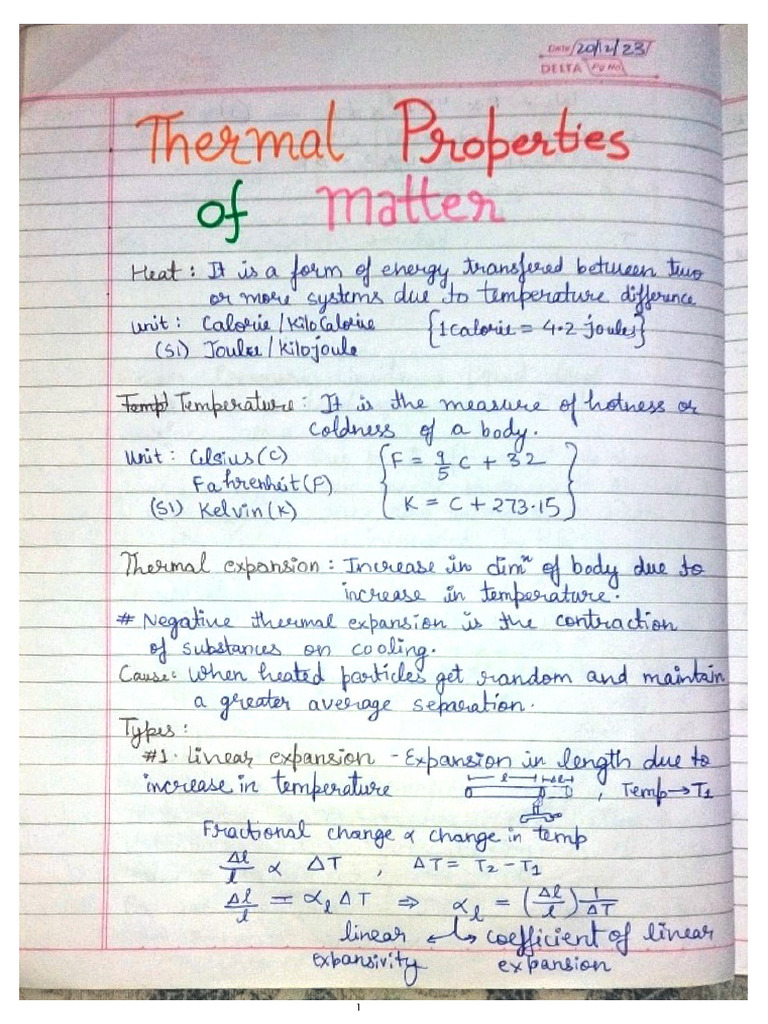 Date 20/12/23
DELTA Pg No.
Thermal Properties
of Matter
Heat : It is a form of energy transfered between two
or more systems due to temperature difference
Unit : Calorie/KiloCalorie {1 calorie = 4.2 joules}
(SI) Joule/kilojoule
Temp Temperature : It is the measure of hotness or
coldness of a body.
Unit : Celsius (C) {F = 9/5 C + 32
Fahrenheit (F)
(SI) Kelvin (K) K = C + 273.15}
Thermal expansion : Increase in dimⁿ of body due to
increase in temperature.
# Negative thermal expansion is the contraction
of substances on cooling.
Cause: When heated particles get random and maintain
a greater average separation.
Types :
#1. Linear expansion - Expansion in length due to
l Δl
increase in temperature , Temp → T₁
Fractional change ∝ change in temp
Δl/l ∝ ΔT , ΔT = T₂ - T₁
Δl/l = α_l ΔT ⇒ α_l = (Δl/l) 1/ΔT
linear ↲↳ coefficient of linear
expansivity expansion
1